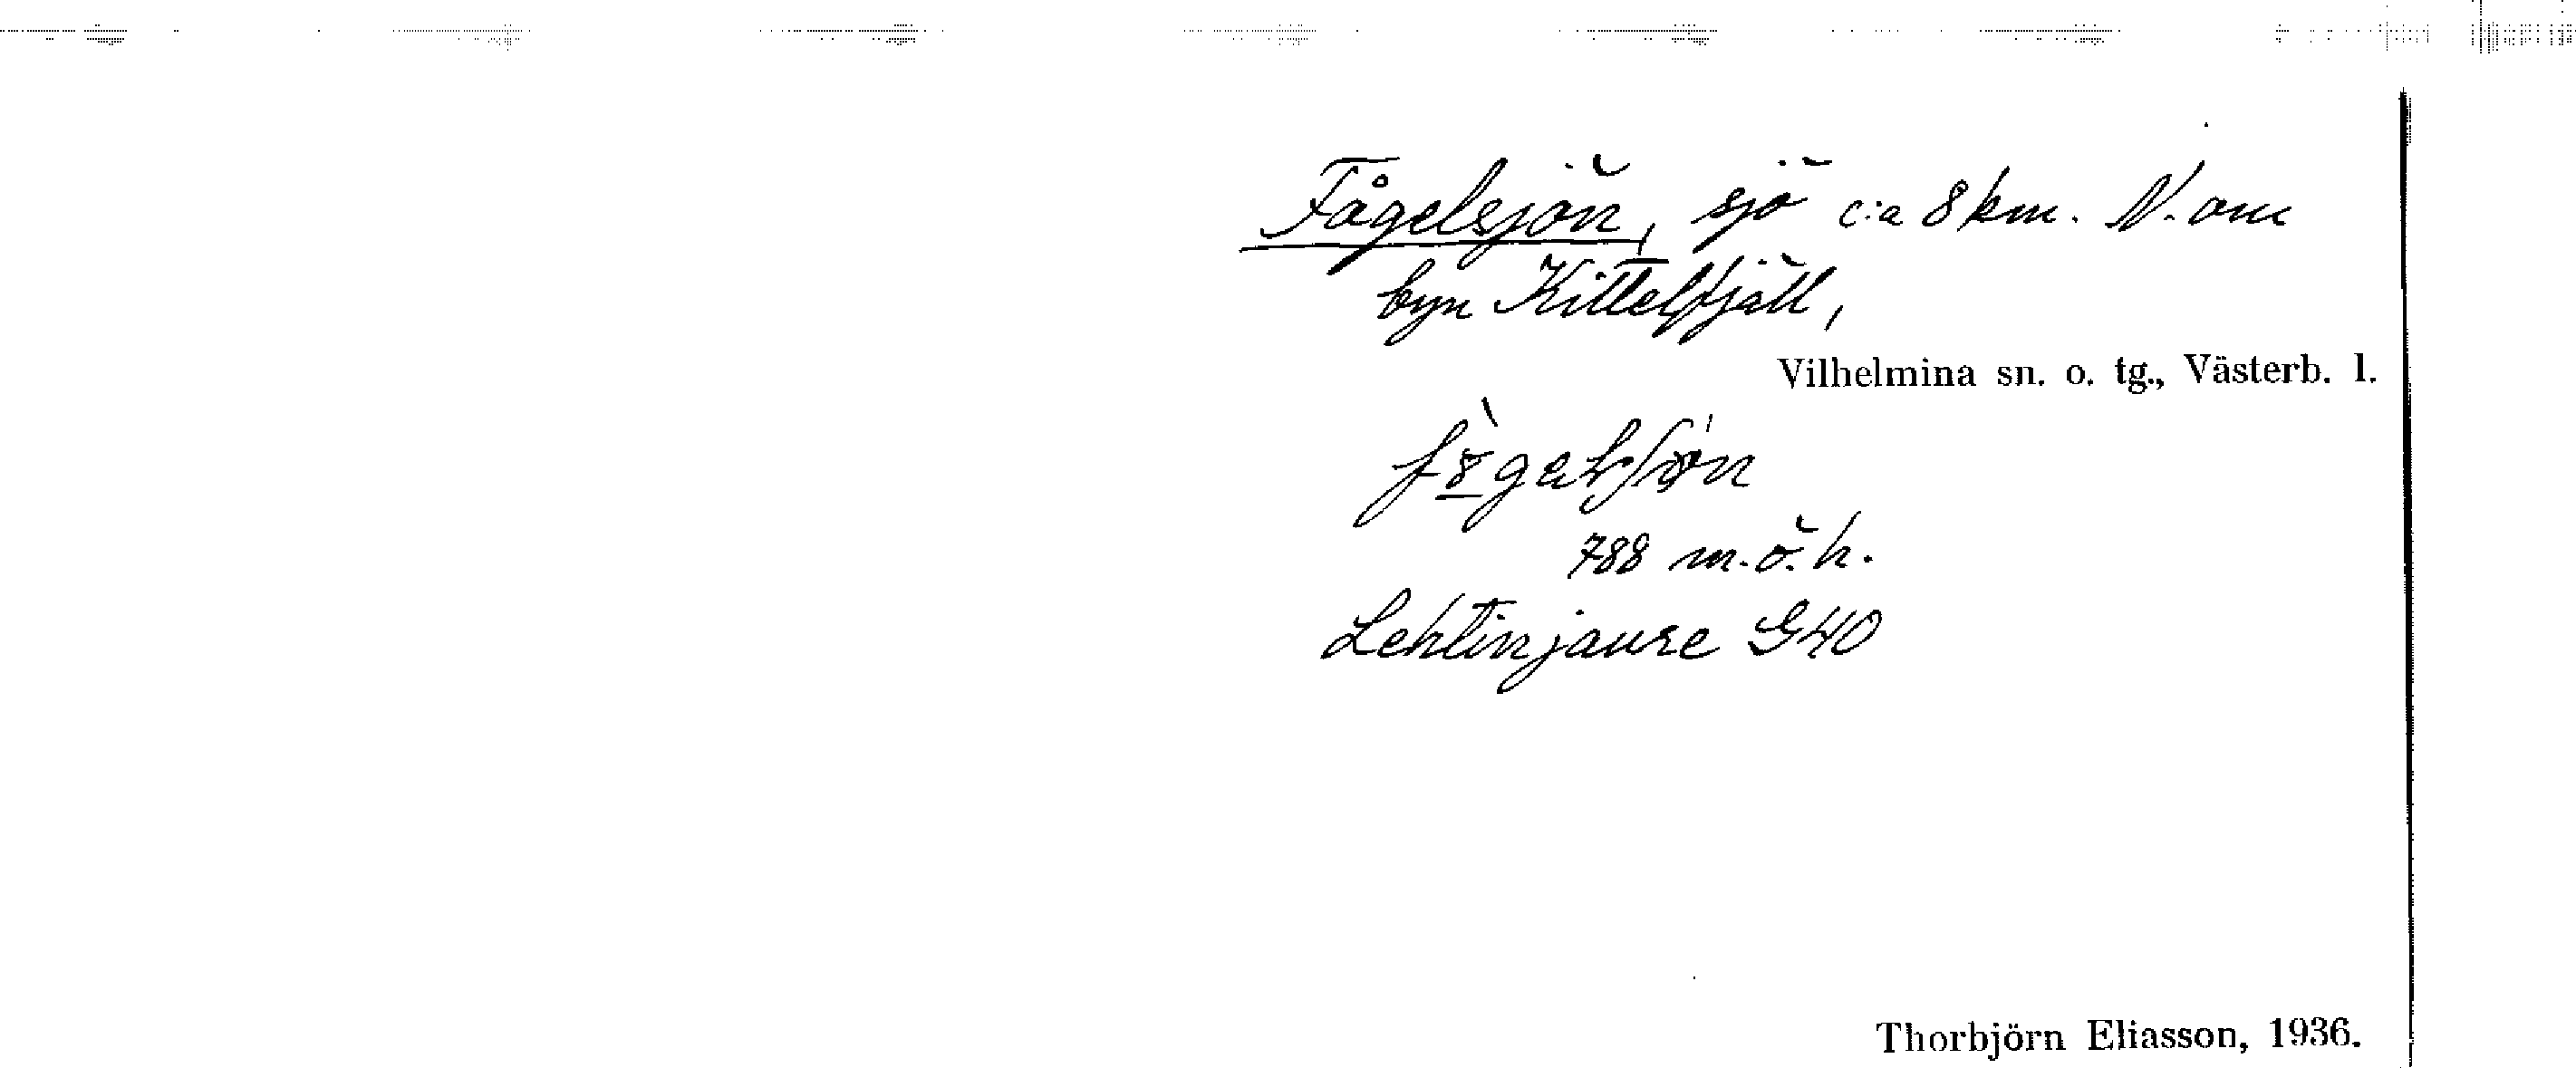 Fågelsjön, sjö c:a 8 km. N. om
byn Kittelfjäll,
Vilhelmina sn. o. tg., Västerb. l.
788 m.ö.h.
Lehtinjaure G40
Thorbjörn Eliasson, 1936.